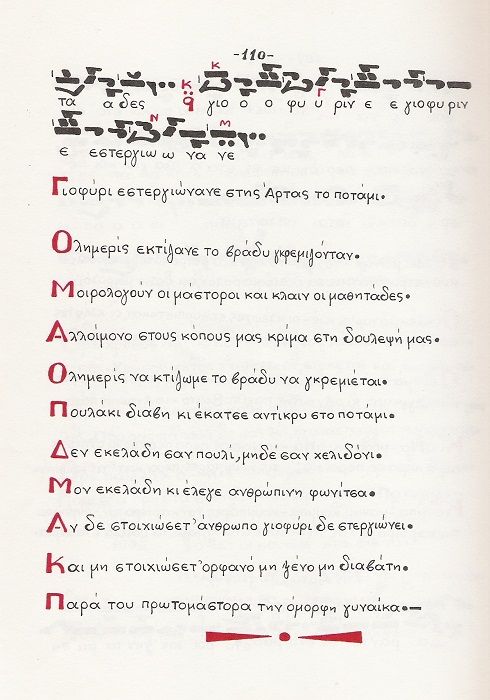 -110-
τα α δες γιο ο ο φυ υ ριν ε ε γιοφυριν
ε εστεργιω ω να νε
Γιοφύρι εστεργιώνανε στης Άρτας το ποτάμι.
Ολημερίς εκτίζανε το βράδυ γκρεμιζόνταν.
Μοιρολογούν οι μάστοροι και κλαιν οι μαθητάδες.
Αλλοίμονο στους κόπους μας κρίμα στη δουλεψή μας.
Ολημερίς να κτίζωμε το βράδυ να γκρεμιέται.
Πουλάκι διάβη κι έκατσε αντίκρυ στο ποτάμι.
Δεν εκελάδη σαν πουλί, μηδέ σαν χελιδόνι.
Μον εκελάδη κι έλεγε ανθρώπινη φωνίτσα.
Αν δε στοιχιώσετ' άνθρωπο γιοφύρι δε στεργιώνει.
Και μη στοιχιώσετ' ορφανό μη ξένο μη διαβάτη.
Παρά του πρωτομάστορα την όμορφη γυναίκα.—